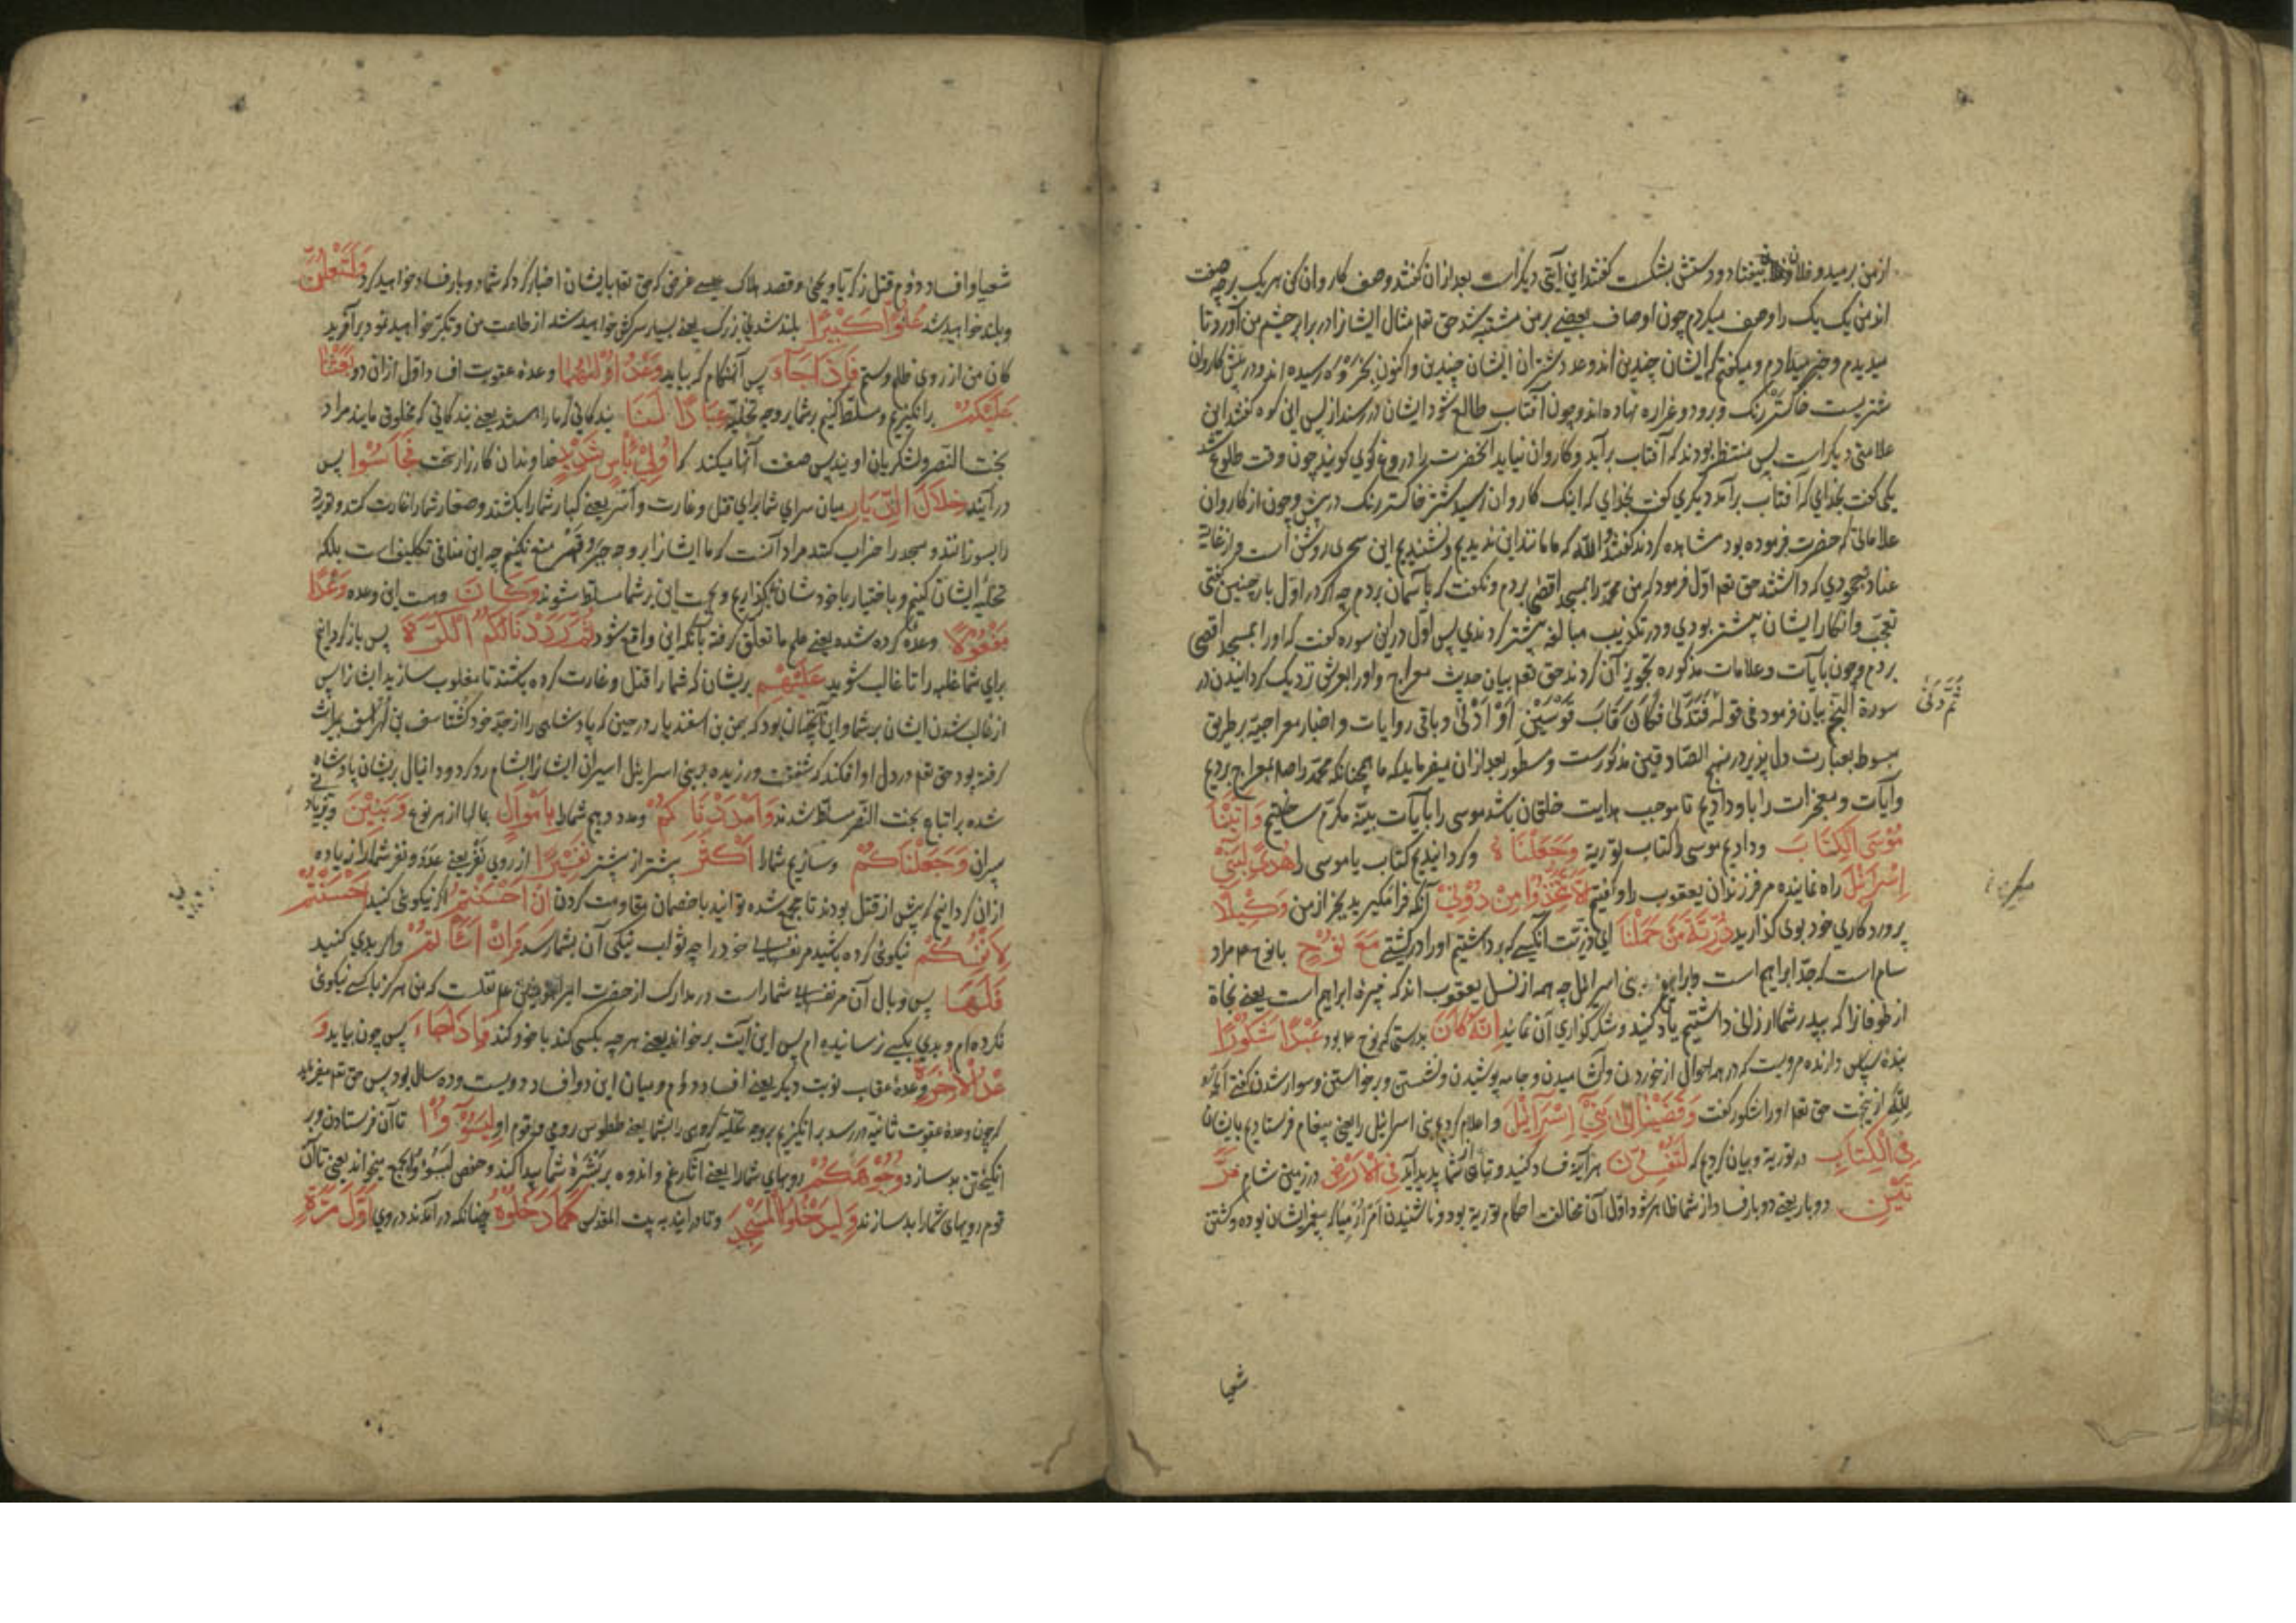 ازمن برمید و فلان بیفتاد و دستش بشکست گفتند این آیتی دیگر است بعد ازان گفتند وصف کاروان کن هریک برچه صفت
اند من یک یک را وصف میکردم چون اوصاف بعضی بر من مشتبه شد حق تعم مثال ایشانرا در برابر چشم من آورد تا
میدیدم و خبر میدادم و میگفتم که ایشان چندین اند و عدد شتران ایشان چندین و اکنون رسیده اند و در پیش کاروان
شتریست خاکستر رنگ و برو دو غراره نهاده اند و چون آفتاب طالع شود ایشان در رسند از پس این کوه گفتند این
علامتی دیگر است پس منتظر بودند که آفتاب برآید و کاروان نیاید آنحضرت را دروغ گوی گویند چون وقت طلوع شد
یکی گفت بخدای که آفتاب برآمد دیگری گفت بخدای که اینک کاروان رسید شتر خاکستر رنگ در پیش و چون از کاروان
علاماتی که حضرت فرموده بود مشاهده کردند گفتند والله که ما مانند این ندیدیم و نشنیدیم این سحری روشن است و از غایت
عناد و جحودی که داشتند حق تعم اول فرمود که من محمد را بمسجد اقصی بردم و نگفت که بآسمان بردم چه اگر در اول بار چنین گفتی
تعجب و انکار ایشان بیشتر بودی و در تکذیب مبالغه بیشتر کردندی پس اول درین سوره گفت که اورا بمسجد اقصی
بردم و چون بآیات و علامات مذکوره تجویز آن کردند حق تعم بیان حدیث معراج و اورا بعرش نزدیک گردانیدن در
سورة النجم بیان فرمود فی قوله فَتَدَلّٰی فَکَانَ قَابَ قَوْسَیْنِ اَوْ اَدْنٰی و باقی روایات و اخبار معراجیه بر طریق
ثُمَّ دَنٰی
مبسوط بعبارت دل پذیر در منهج الصادقین مذکورست و مسطور بعد ازان میفرماید که ما همچنانکه محمد را صلعم بمعراج بردیم
و آیات و معجزات را باو دادیم تا موجب هدایت خلقان باشد موسی را بآیات بینه مکرم ساختیم وَاٰتَیْنَا
مُوْسَی الْکِتَابَ و دادیم موسی را کتاب توریة وَجَعَلْنَاهُ و گردانیدیم کتاب یا موسی را هُدًی لِبَنِیْ
اِسْرَائِیْلَ راه نماینده مر فرزندان یعقوب را و گفتیم اَلَّا تَتَّخِذُوْا مِنْ دُوْنِیْ آنکه فرا مگیرید بجز از من وَکِیْلًا
پروردگاری خود بوی گذارید ذُرِّیَّةَ مَنْ حَمَلْنَا ای ذریت آنکسی که برداشتیم اورا در کشتی مَعَ نُوْحٍ با نوح ع م مراد
سام است که جد ابراهیم است و ابراهیم بنی اسرائل چه همه از نسل یعقوب اند که نبیره ابراهیم است یعنی نجاة
از طوفانرا که بپدر شما ارزانی داشتیم یاد کنید و شکر گذاری آن نمائید اِنَّهٗ کَانَ بدرستی که نوح ع م بود عَبْدًا شَکُوْرًا
بندهٔ سپاس دارنده مرویست که در همه احوال از خوردن و آشامیدن و جامه پوشیدن و نشستن و برخواستن و سوار شدن گفتی الحمد
للّٰه ازینجت حق تعم اورا شکور گفت وَقَضَیْنَا اِلٰی بَنِیْ اِسْرَائِیْلَ و اعلام کردیم بنی اسرائیل را یعنی پیغام فرستادیم بایشان
فِی الْکِتَابِ در توریة و بیان کردیم که لَتُفْسِدُنَّ هر آینه فساد کنید و تباهی از شما پدید آید فِی الْاَرْضِ در زمین شام مَرَّ
تَیْنِ دو بار یعنی دو بار فساد از شما ظاهر شود اول آن مخالفت احکام توریة بود و ناشنیدن امر ارمیا که پیغمبر ایشان بوده و کشتن
شعیا
شعیا و افساد دوم قتل زکریا و یحیی و قصد هلاک عیسی غرض که حق تعم بایشان اخبار کرد که شما دو بار فساد خواهید کرد وَلَتَعْلُنَّ
و بلند خواهید شد عُلُوًّا کَبِیْرًا بلند شدنی بزرگ یعنی بسیار سرکش خواهید شد از طاعت من و تکبر خواهید نمود بر آفرید
کان من از روی ظلم و ستم فَاِذَا جَآءَ پس آنهنگام که بیاید وَعْدُ اُوْلٰیهُمَا وعده عقوبت افساد اول ازان دو بَعَثْنَا
عَلَیْکُمْ برانگیزیم و مسلط کنیم بر شما بر وجه تخلیة عِبَادًا لَنَا بندگانی که ما را باشند یعنی بندگانی که مخلوق مایند مراد
بخت النصر و لشکریان اویند پس صفت آنها میکند که اُولِیْ بَاْسٍ شَدِیْدٍ خداوندان کارزار سخت فَجَاسُوْا پس
در آیند خِلَالَ الدِّیَارِ میان سرای شما برای قتل و غارت و اسر یعنی کبار شما را بکشتند و صغار شما را غارت کنند و توریة
را بسوزانند و مسجد را خراب کنند مراد آنست که ما ایشانرا بر وجه جبر و قهر منع نکنیم چه این منافی تکلیف است بلکه
تخلیه ایشان کنیم و باختیار با خودشان بگذاریم و بجهت این بر شما مسلط شوند وَکَانَ و هست این وعده وَعْدًا
مَفْعُوْلًا وعدهٔ کرده شده یعنی علم ما تعلق گرفته بآنکه این واقع شود ثُمَّ رَدَدْنَا لَکُمُ الْکَرَّةَ پس باز گردانیم
برای شما غلبه را تا غالب شوید عَلَیْهِمْ بریشان که شما را قتل و غارت کرده باشند تا مغلوب سازید ایشانرا پس
از غالب شدن ایشان بر شما و این آنچنان بود که بهمن بن اسفندیار در حین که پادشاهی را از جد خود گشتاسف بن لهراسف بمیراث
گرفته بود حق تعم در دل او افکند که شفقت ورزیده بر بنی اسرایل اسیران ایشانرا بشام رد کرد و دانیال بریشان پادشاه
شده بر اتباع بخت النصر مسلط شدند وَاَمْدَدْنَاکُمْ و مدد دهیم شما را بِاَمْوَالٍ بمالها از هر نوع وَبَنِیْنَ و بزیاد
سپرانی وَجَعَلْنَاکُمْ و سازیم شما را اَکْثَرَ بیشتر از پیشتر نَفِیْرًا از روی نفر یعنی عدد و نفر شما را زیاده
ازان گردانیم که پیش از قتل بودند تا جمع شده توانید با خصمان مقاومت کردن اِنْ اَحْسَنْتُمْ اگر نیکوئی کنید اَحْسَنْتُمْ
لِاَنْفُسِکُمْ نیکوئی کرده باشید مر نفسهای خود را چه ثواب نیکی آن بشما رسد وَاِنْ اَسَاْتُمْ و اگر بدی کنید
فَلَهَا پس وبال آن مر نفسهای شما راست در مدارک از حضرت امیر المومنین علی نقلست که من هرگز با کسی نیکوئی
نکرده ام و بدی بکسی نرسانیده ام پس این آیت برخواند یعنی هر چه بکسی کند با خود کند فَاِذَا جَاءَ پس چون بیاید وَ
عْدُ الْاٰخِرَةِ وعدهٔ عقاب نوبت دیگر یعنی افساد دوم و میان این دو افساد دویست و ده سال بود پس حق تعم میفرماید
که چون وعده عقوبت ثانیه در رسد برانگیزیم بر وجه تخلیه گروهی را بشما یعنی ططوس رومی و قوم او لِیَسُوْٓءُوْا تا آن فرستادن و بر
انگیختن بد سازد وُجُوْهَکُمْ رویهای شما را یعنی آثار غم و اندوه بر بشرهٔ شما پیدا کند و حفص لیسوؤا بجمع میخواند یعنی تا آن
قوم رویهای شما را بد سازند وَلِیَدْخُلُوا الْمَسْجِدَ و تا در آیند به بیت المقدس کَمَا دَخَلُوْهُ چنانکه در آمدند در وی اَوَّلَ مَرَّةٍ